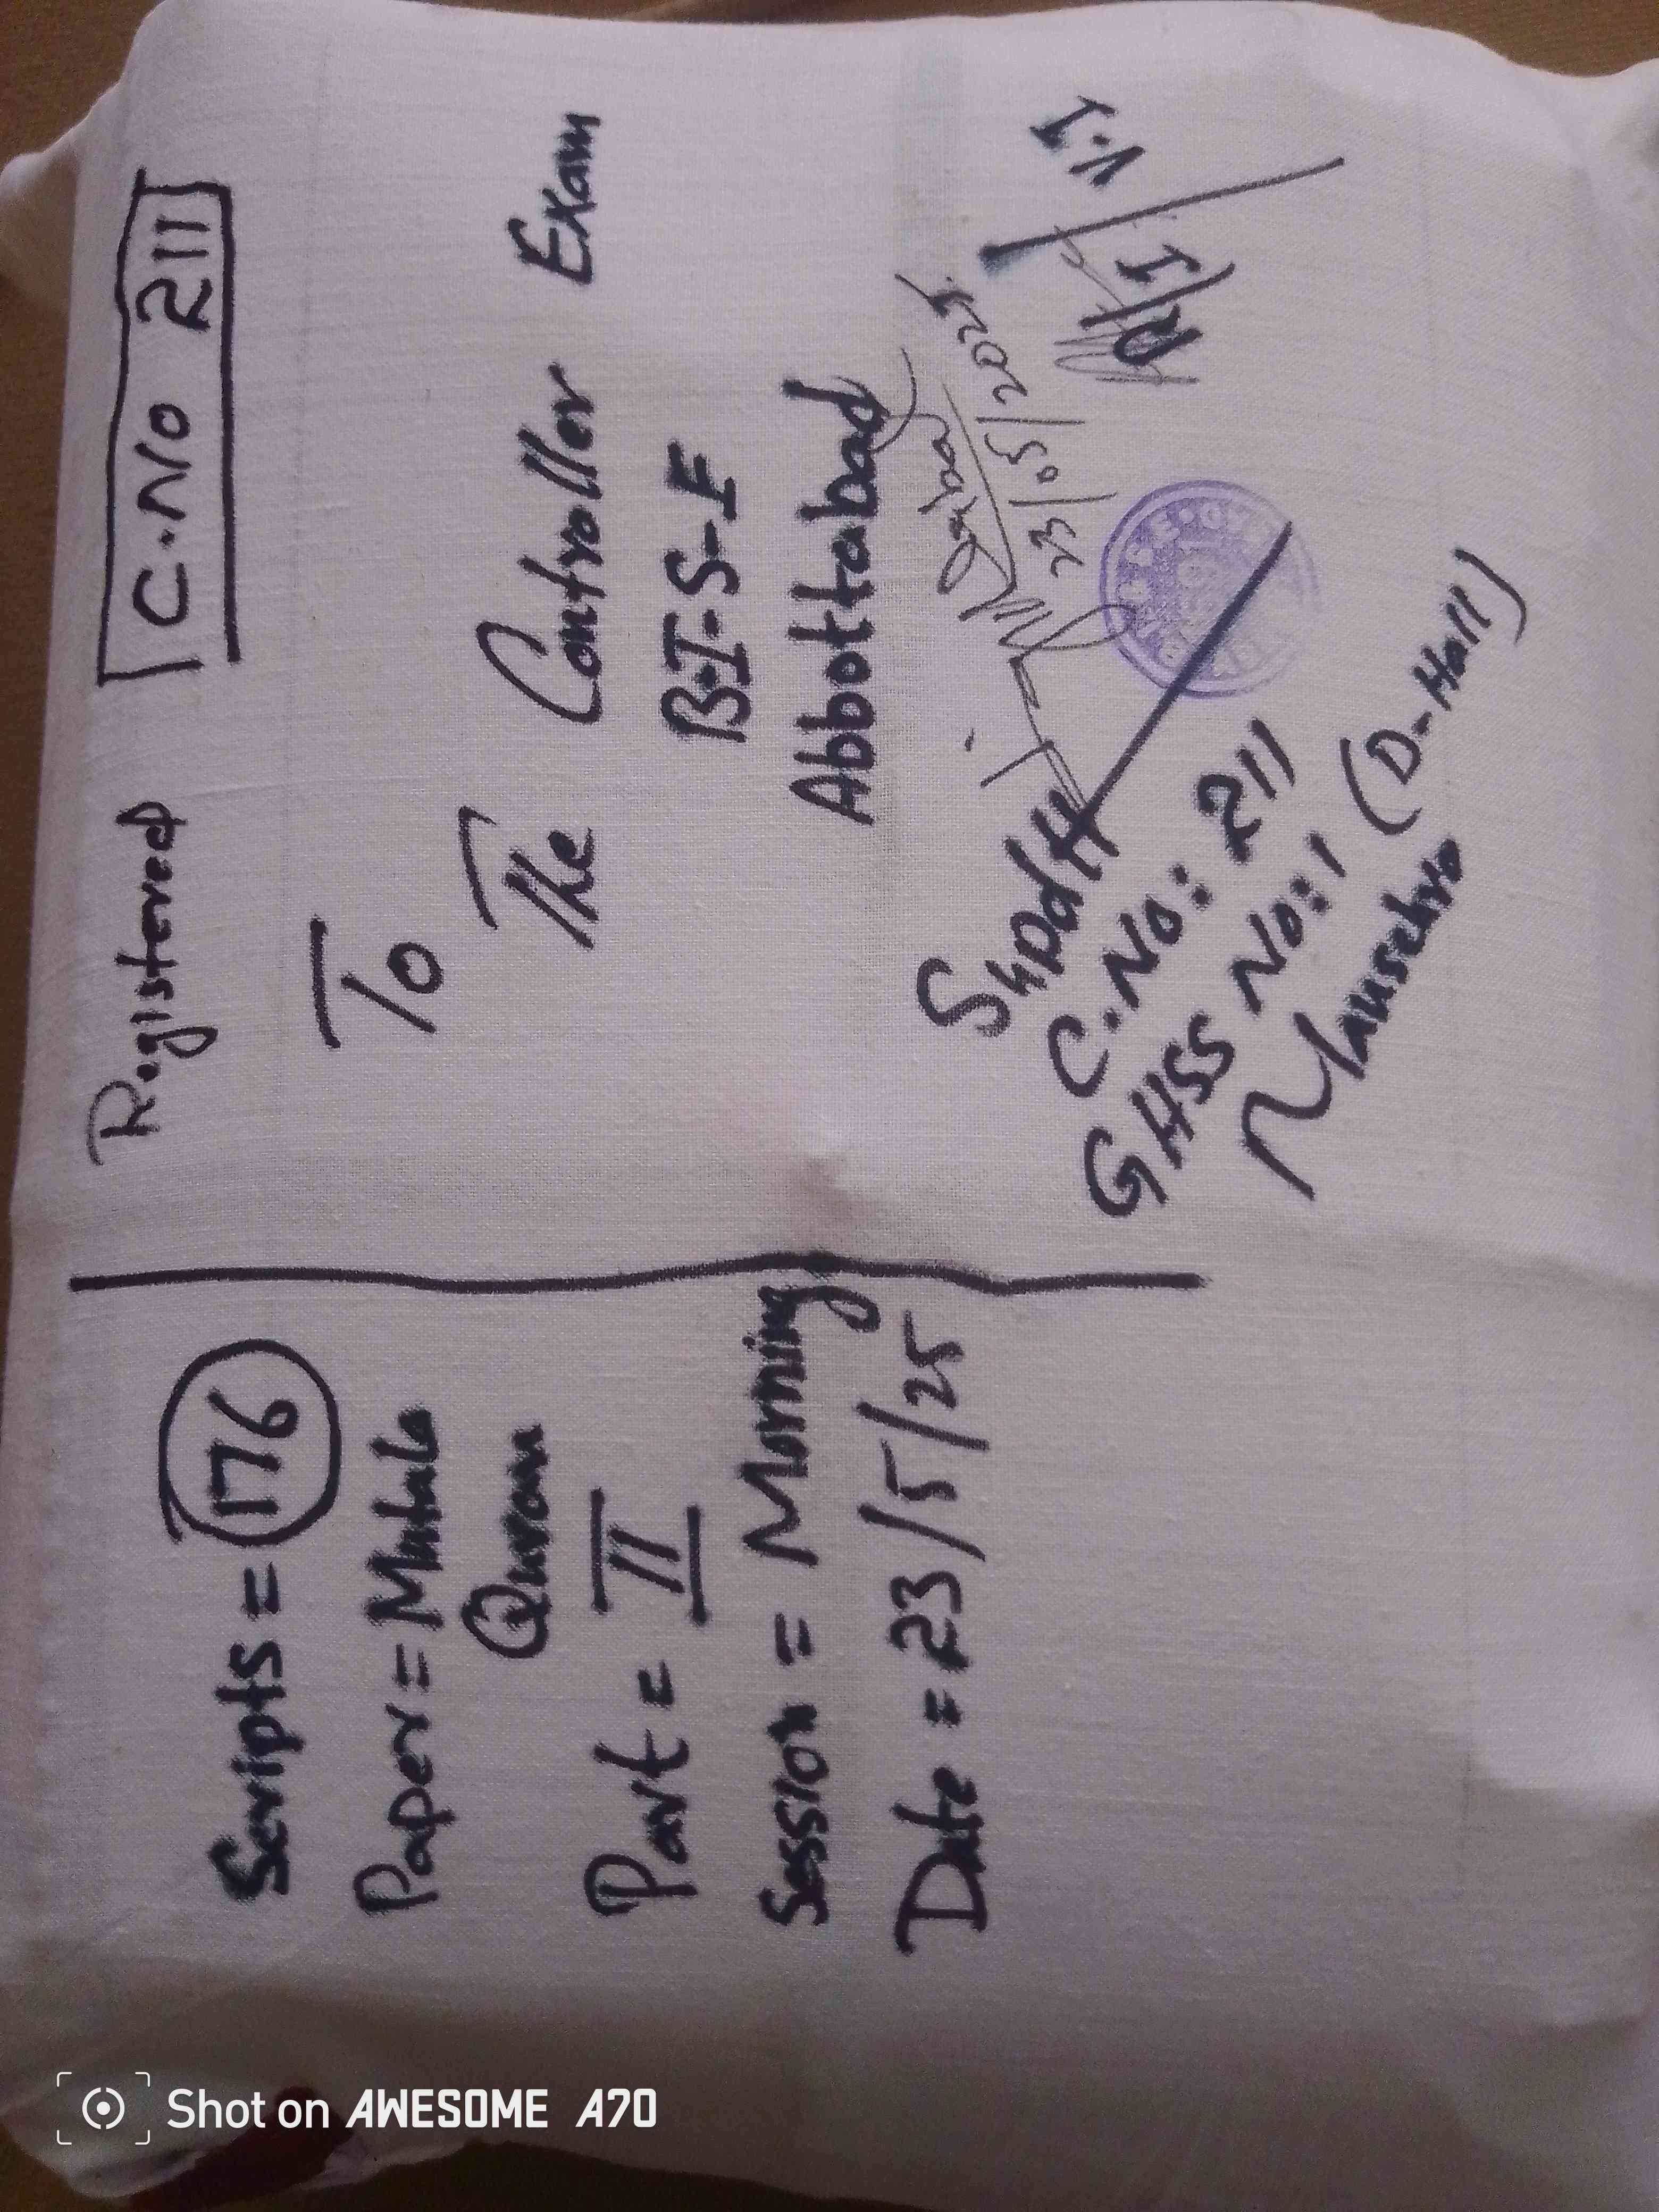 Registered
C.No 211
Scripts = 176
Paper = Mutala
Quran
Part = II
Session = Morning
Date = 23/5/25
To
The Controller Exam
B.I.S.E
Abbottabad
23/05/2025
R/I / V.I
Supdtt
C.No: 211
GHSS No: 1 (D-Hall)
Mansehra
Shot on AWESOME A70